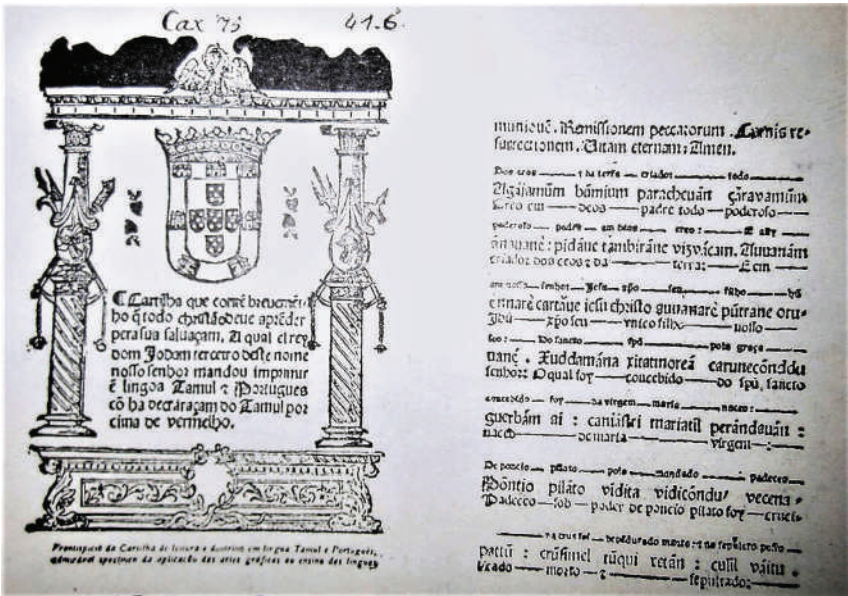 Cax 75 41.6.
C Cartilha que contē breuemēte
ho q̄ todo christão deue aprēder
pera sua saluaçam. A qual el rey
dom Joham terceiro deste nome
nosso senhor mandou imprimir
ē lingoa Tamul ⁊ Portugues
cō ha decraraçam do Tamul por
cima de vermelho.
Frontispício da Cartilha de leitura e doutrina em língua Tamul e Português,
admirável specimen da aplicação das artes gráficas ao ensino das línguas
munionē. Remissionem peccatorum. Carnis re-
surrectionem. Uitam eternam: Amen.
Dos ceos ⁊ da terra criador todo
Agājamūm būmium paracheuān çāravamūm
Creo em deos padre todo poderoso
poderoso padre em deos creo: E
pidāue tambirāne viçuācam.
criador dos ceos ⁊ da terra: E em
nosso senhor Jesu xp̄o seu filho hū
ennarē cartāue iesu christo auuanarē pūtrane oru-
Jesu xp̄o seu vnico filho nosso
Do sancto spū pola graça
Xuddamāna xitatinoreā carunecōnddu
senhor: O qual foy concebido do spū sancto
concebido foy da virgem maria naceo:
guerbām ai : canīastri mariatil perāndauān :
naceo de maria virgem :
De poncio pilato polo mandado padeceo
Pōntio pilāto vidita vidicōndu vecena-
Padeceo sob poder de poncio pilato foy cruci-
na cruz foi morto: ⁊ na sepulcro
pattū : crūsinel tūqui xetān : culil vaitu
ficado morto ⁊ sepultado: